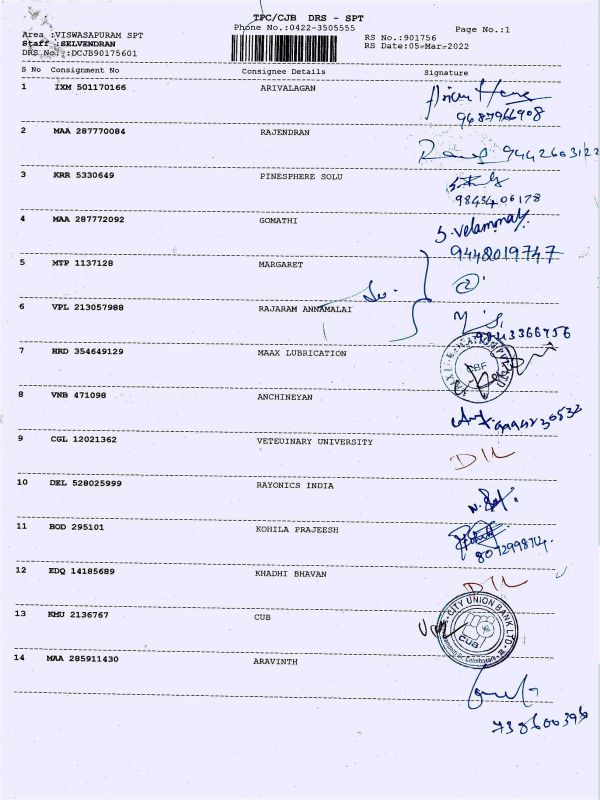 TPC/CJB DRS - SPT
Phone No.:0422-3505555
Page No.:1
Area :VISWASAPURAM SPT
Staff :SELVENDRAN
DRS No.:DCJB90175601
RS No.:901756
RS Date:05-Mar-2022
S No Consignment No Consignee Details Signature
1 IXM 501170166 ARIVALAGAN
9687966908
2 MAA 287770084 RAJENDRAN
9442603122
3 KRR 5330649 PINESPHERE SOLU
9843406178
4 MAA 287772092 GOMATHI
S. Velammal
9442019747
5 MTP 1137128 MARGARET
6 VPL 213057988 RAJARAM ANNAMALAI
9843366756
7 HRD 354649129 MAAX LUBRICATION
CBF
8 VNB 471098 ANCHINEYAN
9994230532
9 CGL 12021362 VETEUINARY UNIVERSITY
DIL
10 DEL 528025999 RAYONICS INDIA
11 BOD 295101 KOHILA PRAJEESH
12 EDQ 14185689 KHADHI BHAVAN
DIL
13 KMU 2136767 CUB
CITY UNION BANK LTD.
CUB
14 MAA 285911430 ARAVINTH